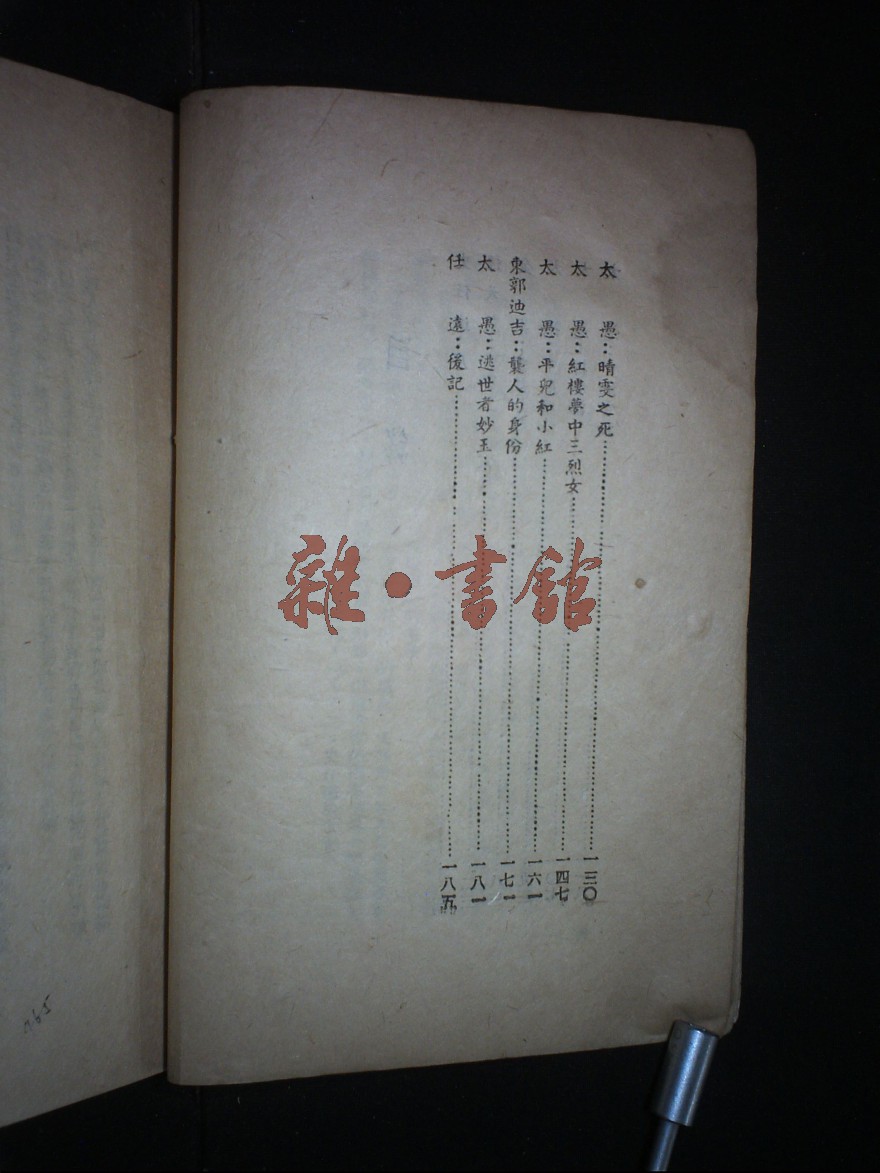 太　愚：晴雯之死…………一三〇
太　愚：紅樓夢中三烈女…………一四七
太　愚：平兒和小紅…………一六一
東郭迪吉：襲人的身份…………一七一
太　愚：逃世者妙玉…………一八一
任　遠：後記…………一八五
雜·書館